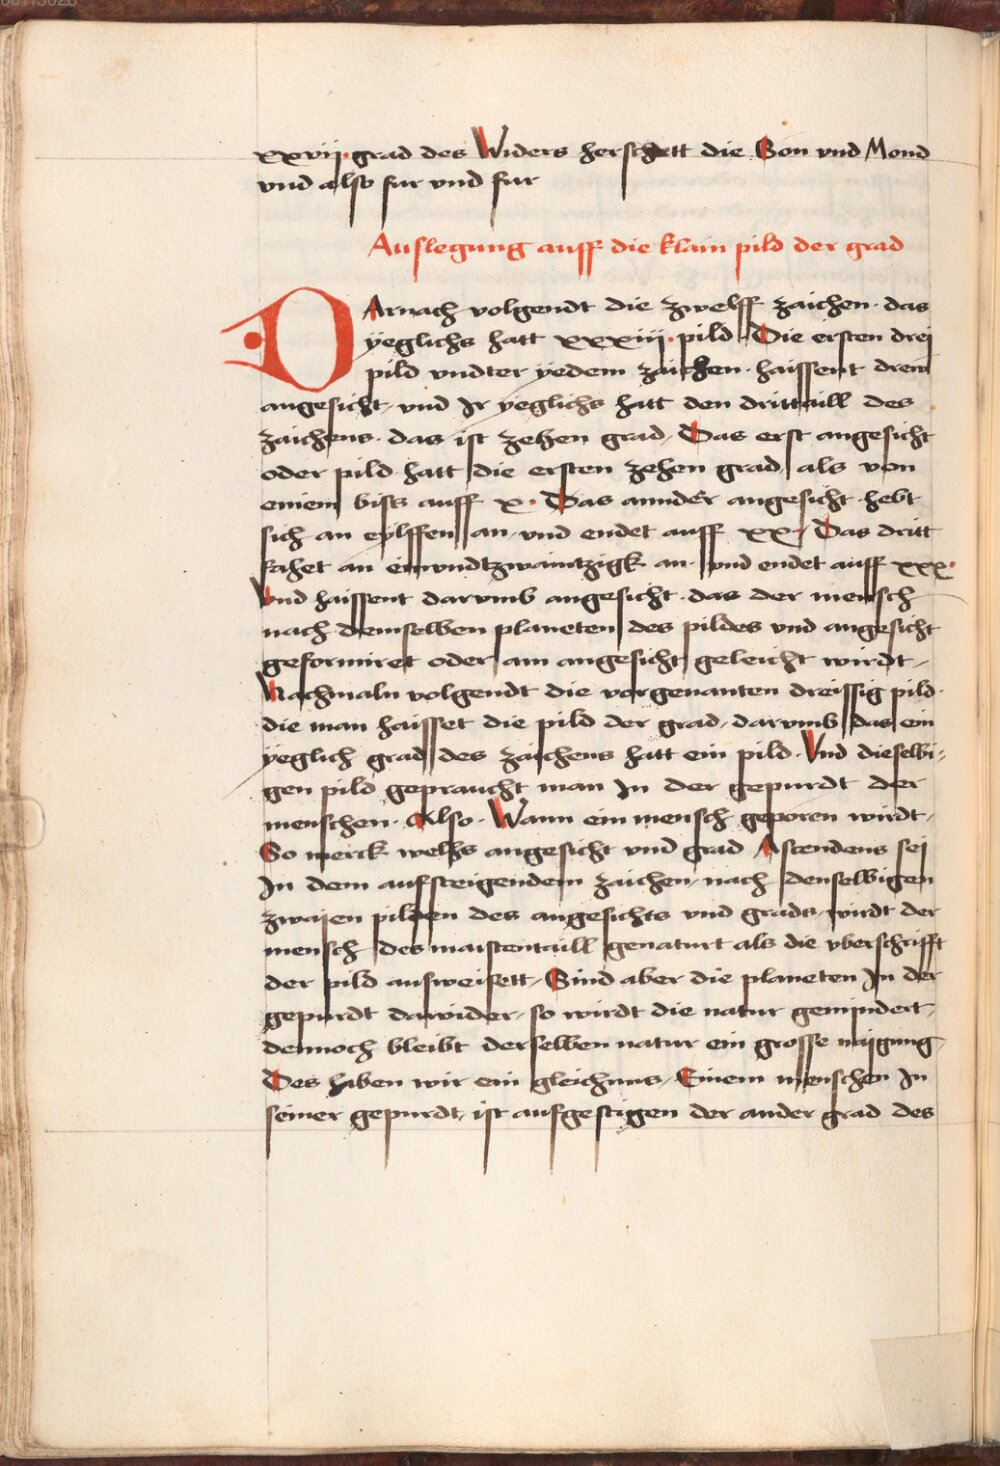 xxvij· grad des Widers herschett die Son vnd Mond
vnd also fur vnd fur
Auslegung auff die klain pild der grad
DArnach volgendt die zwelff zaichen· das
yeglichs hatt xxxiij· pild· Die ersten drei
pild vndter yedem zaichen· haissent drew
angesicht, vnd Ir yeglichs hatt den drittaill des
zaichens· das ist zehen grad, Das erst angesicht
oder pild hatt die ersten zehen grad, als von
einem biss auff x· Das annder angesicht hebt
sich an eylffen an, vnd endet auff xx, Das dritt
fahet an einvndtzwaintzigk an· vnd endet auff xxx·
Vnd haissent darvmb angesicht· das der mensch
nach demselben planeten des pildes vnd angesicht
geformiret oder am angesicht geleicht wirdt,
Nachmaln volgendt die vorgenanten dreissig pild·
die man haisset die pild der grad, darvmb das ein
yeglich grad des zaichens hatt ein pild· Vnd dieselbi-
gen pild gepraucht man In der gepurdt der
menschen· Also· Wann ein mensch geporen wirdt,
So merck welhs angesicht vnd grad Astendens sei
In dem aufsteigendem zaichen, nach denselbigen
zwaien pilden des angesichts vnd grads, wirdt der
mensch des maistentaill genaturt als die vberschrifft
der pild ausweisett, Sind aber die planeten In der
gepurdt dawider, so wirdt die natur gemindert,
dennoch bleibt derselben natur ein grosse naigung,
Des haben wir ein gleichnus, Einem menschen In
seiner gepurdt, ist aufgestigen der ander grad des